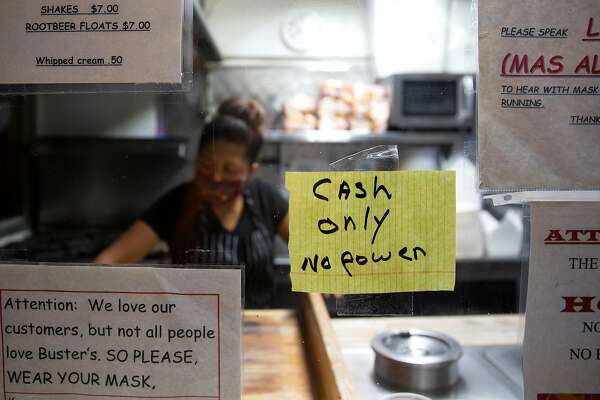 SHAKES $7.00
ROOTBEER FLOATS $7.00
Whipped cream .50
PLEASE SPEAK L
(MAS AL
TO HEAR WITH MASK
RUNNING.
THANK
CASH
only
No power
ATT
THE
H
NO
NO
Attention: We love our
customers, but not all people
love Buster's. SO PLEASE,
WEAR YOUR MASK,